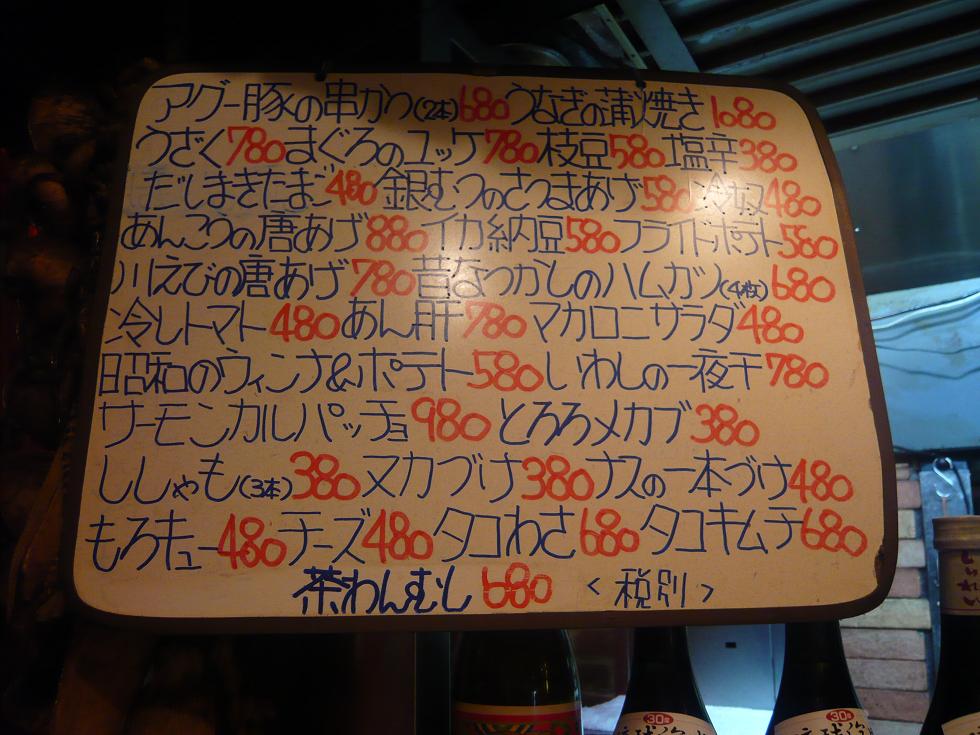 アグー豚の串かつ(2本)680 うなぎの蒲焼き1680
うざく780 まぐろのユッケ780 枝豆580 塩辛380
だしまきたまご480 銀むつのさつまあげ580 冷奴480
あんこうの唐あげ880 イカ納豆580 フライドポテト580
川えびの唐あげ780 昔なつかしのハムカツ(4枚)680
冷しトマト480 あん肝780 マカロニサラダ480
昭和のウィンナ&ポテト580 いわしの一夜干780
サーモンカルパッチョ980 とろろメカブ380
ししゃも(3本)380 ヌカづけ380 ナスの一本づけ480
もろキュー480 チーズ480 タコわさ680 タコキムチ680
茶わんむし 680 <税別>
30度
30度